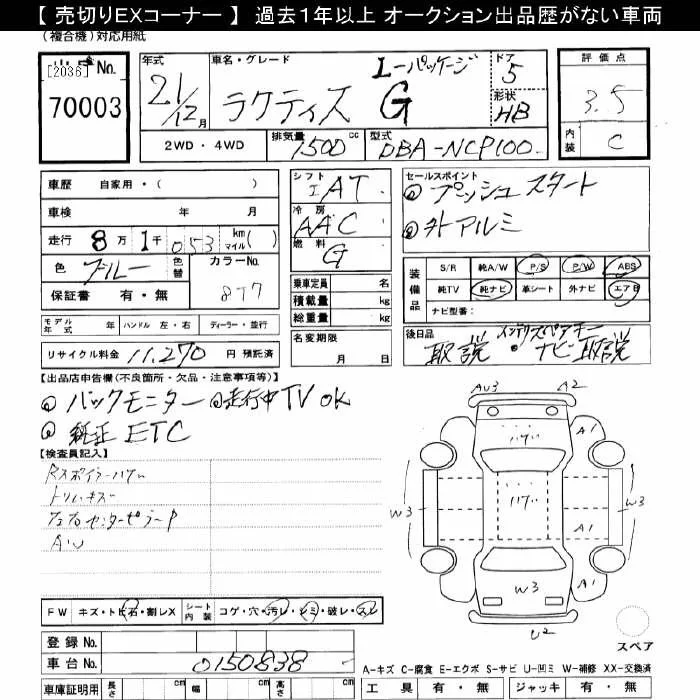 【 売切りEXコーナー 】 過去1年以上 オークション出品歴がない車両
(複合機)対応用紙
[2036] No.
70003
年式 21/12月
車名・グレード
ラクティス G Lーパッケージ
ドア 5
形状 HB
評価点 3.5
内装 C
2WD・4WD 排気量 1500cc 型式 DBA-NCP100
車歴 自家用・( )
車検 年 月
走行 8万1千053 km マイル( )
色 ブルー 色替 カラーNo. 8T7
保証書 有・無
モデル年式 年 ハンドル 左・右 ディーラー・並行
リサイクル料金 11,270 円 預託済
シフト IAT
冷房 AAC
燃料 G
乗車定員 名
積載量 kg
総重量 kg
名変期限 月 日
セールスポイント
◎プッシュスタート
◎外アルミ
装備品
S/R 純A/W P/S P/W ABS
純TV 純ナビ 革シート 外ナビ エアB
ナビ型番:
後日品
取説 ・インテリスペアキー
・ナビ取説
【出品店申告欄(不良箇所・欠品・注意事項等)】
◎バックモニター ◎走行中TV OK
◎純正 ETC
【検査員記入】
Rスポイラーハゲ
トリムキズ
左右センターピラーP
AU3 A2
A1
ハゲ
ハゲ
W3 W3
A1
A1
W3
U2
スペア
FW キズ・トビ石・割レX シート内装 コゲ・穴・汚レ・シミ・破レ・スレ
登録No.
車台No. 0150838
車庫証明用 長さ cm 幅 cm 高さ cm
A-キズ C-腐食 E-エクボ S-サビ U-凹ミ W-補修 XX-交換済
工具 有・無 ジャッキ 有・無